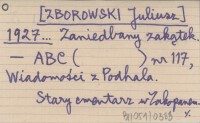 [ZBOROWSKI Juliusz]
1927... Zaniedbany zakątek.
— ABC ( ) nr 117,
Wiadomości z Podhala.
Stary cmentarz w Zakopanem.
x.